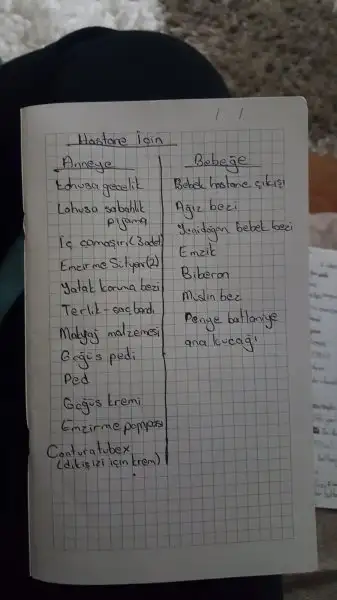 Hastane İçin
Anneye
Lohusa gecelik
Lohusa sabahlık
pijama
İç çamaşırı (3 adet)
Emzirme Sütyeni (2)
Yatak koruma bezi
Terlik - saç bandı
Makyaj malzemesi
Göğüs pedi
Ped
Göğüs kremi
Emzirme
Conturatubex
(dikiş izi için krem)
Bebeğe
Bebek hastane çıkışı
Ağız bezi
Yenidoğan bebek bezi
Emzik
Biberon
Müslin bez
Penye battaniye
ana kucağı